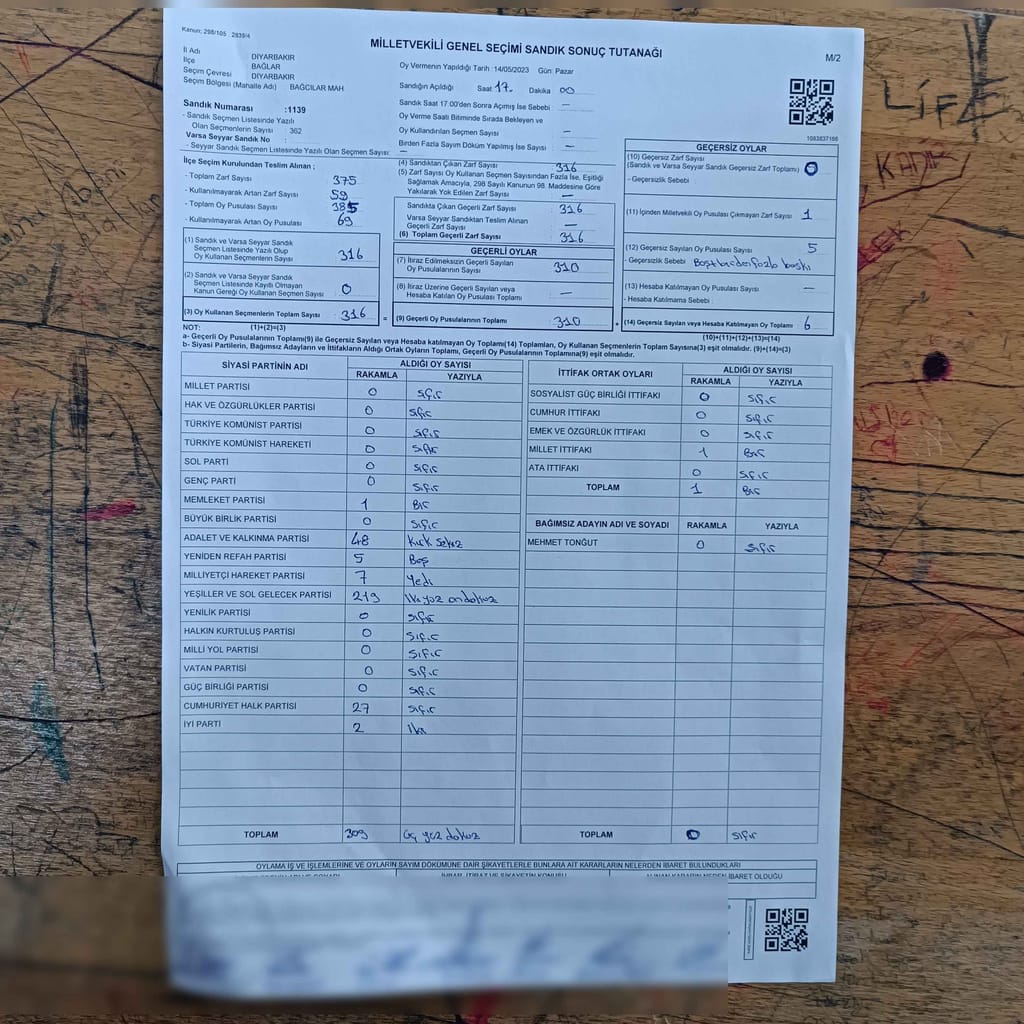 Kanun: 298/105 2839/4
MİLLETVEKİLİ GENEL SEÇİMİ SANDIK SONUÇ TUTANAĞI
M/2
İl Adı DİYARBAKIR
İlçe BAĞLAR
Seçim Çevresi DİYARBAKIR
Seçim Bölgesi (Mahalle Adı) BAĞCILAR MAH
Sandık Numarası :1139
- Sandık Seçmen Listesinde Yazılı
Olan Seçmenlerin Sayısı : 362
Varsa Seyyar Sandık No :
- Seyyar Sandık Seçmen Listesinde Yazılı Olan Seçmen Sayısı: —
Oy Vermenin Yapıldığı Tarih :14/05/2023 Gün: Pazar
Sandığın Açıldığı Saat 17. Dakika 00
Sandık Saat 17:00'den Sonra Açımış İse Sebebi —
Oy Verme Saati Bitiminde Sırada Bekleyen ve
Oy Kullandırılan Seçmen Sayısı —
Birden Fazla Sayım Döküm Yapılmış İse Sayısı —
1083837166
İlçe Seçim Kurulundan Teslim Alınan ;
- Toplam Zarf Sayısı 375
- Kullanılmayarak Artan Zarf Sayısı 59
- Toplam Oy Pusulası Sayısı 385
- Kullanılmayarak Artan Oy Pusulası 69
(1) Sandık ve Varsa Seyyar Sandık
Seçmen Listesinde Yazılı Olup
Oy Kullanan Seçmenlerin Sayısı 316
(2) Sandık ve Varsa Seyyar Sandık
Seçmen Listesinde Kayıtlı Olmayan
Kanun Gereği Oy Kullanan Seçmen Sayısı 0
(3) Oy Kullanan Seçmenlerin Toplam Sayısı 316 =
(4) Sandıktan Çıkan Zarf Sayısı 316
(5) Zarf Sayısı Oy Kullanan Seçmen Sayısından Fazla İse, Eşitliği
Sağlamak Amacıyla, 298 Sayılı Kanunun 98. Maddesine Göre
Yakılarak Yok Edilen Zarf Sayısı —
Sandıkta Çıkan Geçerli Zarf Sayısı 316
Varsa Seyyar Sandıktan Teslim Alınan
Geçerli Zarf Sayısı —
(6) Toplam Geçerli Zarf Sayısı 316
GEÇERLİ OYLAR
(7) İtiraz Edilmeksizin Geçerli Sayılan
Oy Pusulalarının Sayısı 310
(8) İtiraz Üzerine Geçerli Sayılan veya
Hesaba Katılan Oy Pusulası Toplamı —
(9) Geçerli Oy Pusulalarının Toplamı 310 +
GEÇERSİZ OYLAR
(10) Geçersiz Zarf Sayısı
(Sandık ve Varsa Seyyar Sandık Geçersiz Zarf Toplamı) 0
- Geçersizlik Sebebi :
(11) İçinden Milletvekili Oy Pusulası Çıkmayan Zarf Sayısı 1
(12) Geçersiz Sayılan Oy Pusulası Sayısı 5
- Geçersizlik Sebebi :
(13) Hesaba Katılmayan Oy Pusulası Sayısı —
- Hesaba Katılmama Sebebi :
(14) Geçersiz Sayılan veya Hesaba Katılmayan Oy Toplamı 6
NOT: (1)+(2)=(3) (10)+(11)+(12)+(13)=(14)
a- Geçerli Oy Pusulalarının Toplamı(9) ile Geçersiz Sayılan veya Hesaba katılmayan Oy Toplamı(14) Toplamları, Oy Kullanan Seçmenlerin Toplam Sayısına(3) eşit olmalıdır. (9)+(14)=(3)
b- Siyasi Partilerin, Bağımsız Adayların ve İttifakların Aldığı Ortak Oyların Toplamı, Geçerli Oy Pusulalarının Toplamına(9) eşit olmalıdır.
SİYASİ PARTİNİN ADI ALDIĞI OY SAYISI
RAKAMLA YAZIYLA
MİLLET PARTİSİ 0 sıfır
HAK VE ÖZGÜRLÜKLER PARTİSİ 0 sıfır
TÜRKİYE KOMÜNİST PARTİSİ 0 sıfır
TÜRKİYE KOMÜNİST HAREKETİ 0 sıfır
SOL PARTİ 0 sıfır
GENÇ PARTİ 0 sıfır
MEMLEKET PARTİSİ 1 Bir
BÜYÜK BİRLİK PARTİSİ 0 sıfır
ADALET VE KALKINMA PARTİSİ 48 kırk sekiz
YENİDEN REFAH PARTİSİ 5 Beş
MİLLİYETÇİ HAREKET PARTİSİ 7 Yedi
YEŞİLLER VE SOL GELECEK PARTİSİ 219 İki yüz ondokuz
YENİLİK PARTİSİ 0 sıfır
HALKIN KURTULUŞ PARTİSİ 0 sıfır
MİLLİ YOL PARTİSİ 0 sıfır
VATAN PARTİSİ 0 sıfır
GÜÇ BİRLİĞİ PARTİSİ 0 sıfır
CUMHURİYET HALK PARTİSİ 27 sıfır
İYİ PARTİ 2 İki
TOPLAM 309 Üç yüz dokuz
İTTİFAK ORTAK OYLARI ALDIĞI OY SAYISI
RAKAMLA YAZIYLA
SOSYALİST GÜÇ BİRLİĞİ İTTİFAKI 0 sıfır
CUMHUR İTTİFAKI 0 sıfır
EMEK VE ÖZGÜRLÜK İTTİFAKI 0 sıfır
MİLLET İTTİFAKI 1 Bir
ATA İTTİFAKI 0 sıfır
TOPLAM 1 Bir
BAĞIMSIZ ADAYIN ADI VE SOYADI RAKAMLA YAZIYLA
MEHMET TONĞUT 0 sıfır
TOPLAM 0 sıfır
OYLAMA İŞ VE İŞLEMLERİNE VE OYLARIN SAYIM DÖKÜMÜNE DAİR ŞİKAYETLERLE BUNLARA AİT KARARLARIN NELERDEN İBARET BULUNDUKLARI
LİFE
KADIR